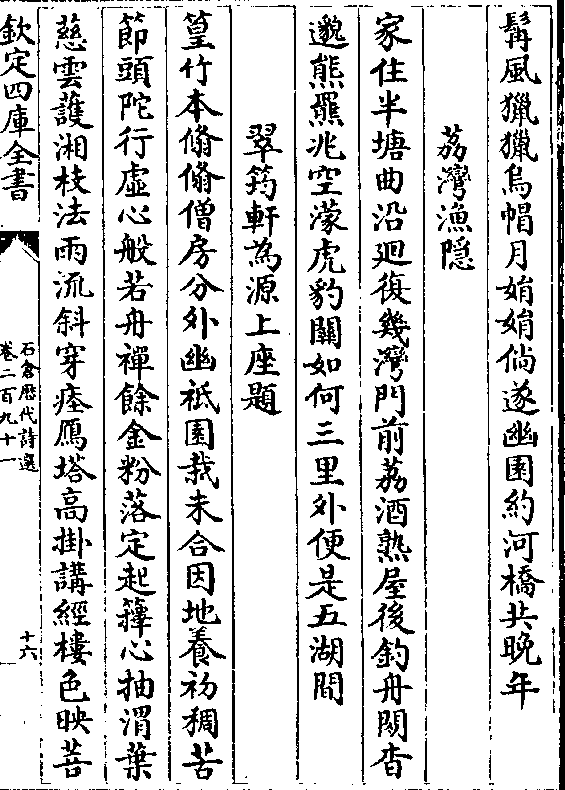 髯風獵獵烏帽月娟娟倘遂幽園約河橋共晚年
荔灣漁隱
家住半塘曲沿迴復幾灣門前荔酒熟屋後釣舟閑杳
邈熊羆兆空濛虎豹關如何三里外便是五湖間
翠筠軒為源上座題
篁竹本翛翛僧房分外幽祇園栽未合因地養初稠苦
節頭陀行虛心般若舟禪餘金粉落定起籜心抽渭葉
慈雲護湘枝法雨流斜穿瘞鴈塔高掛講經樓色映菩
欽定四庫全書
石倉歴代詩選
卷二百九十一
十六